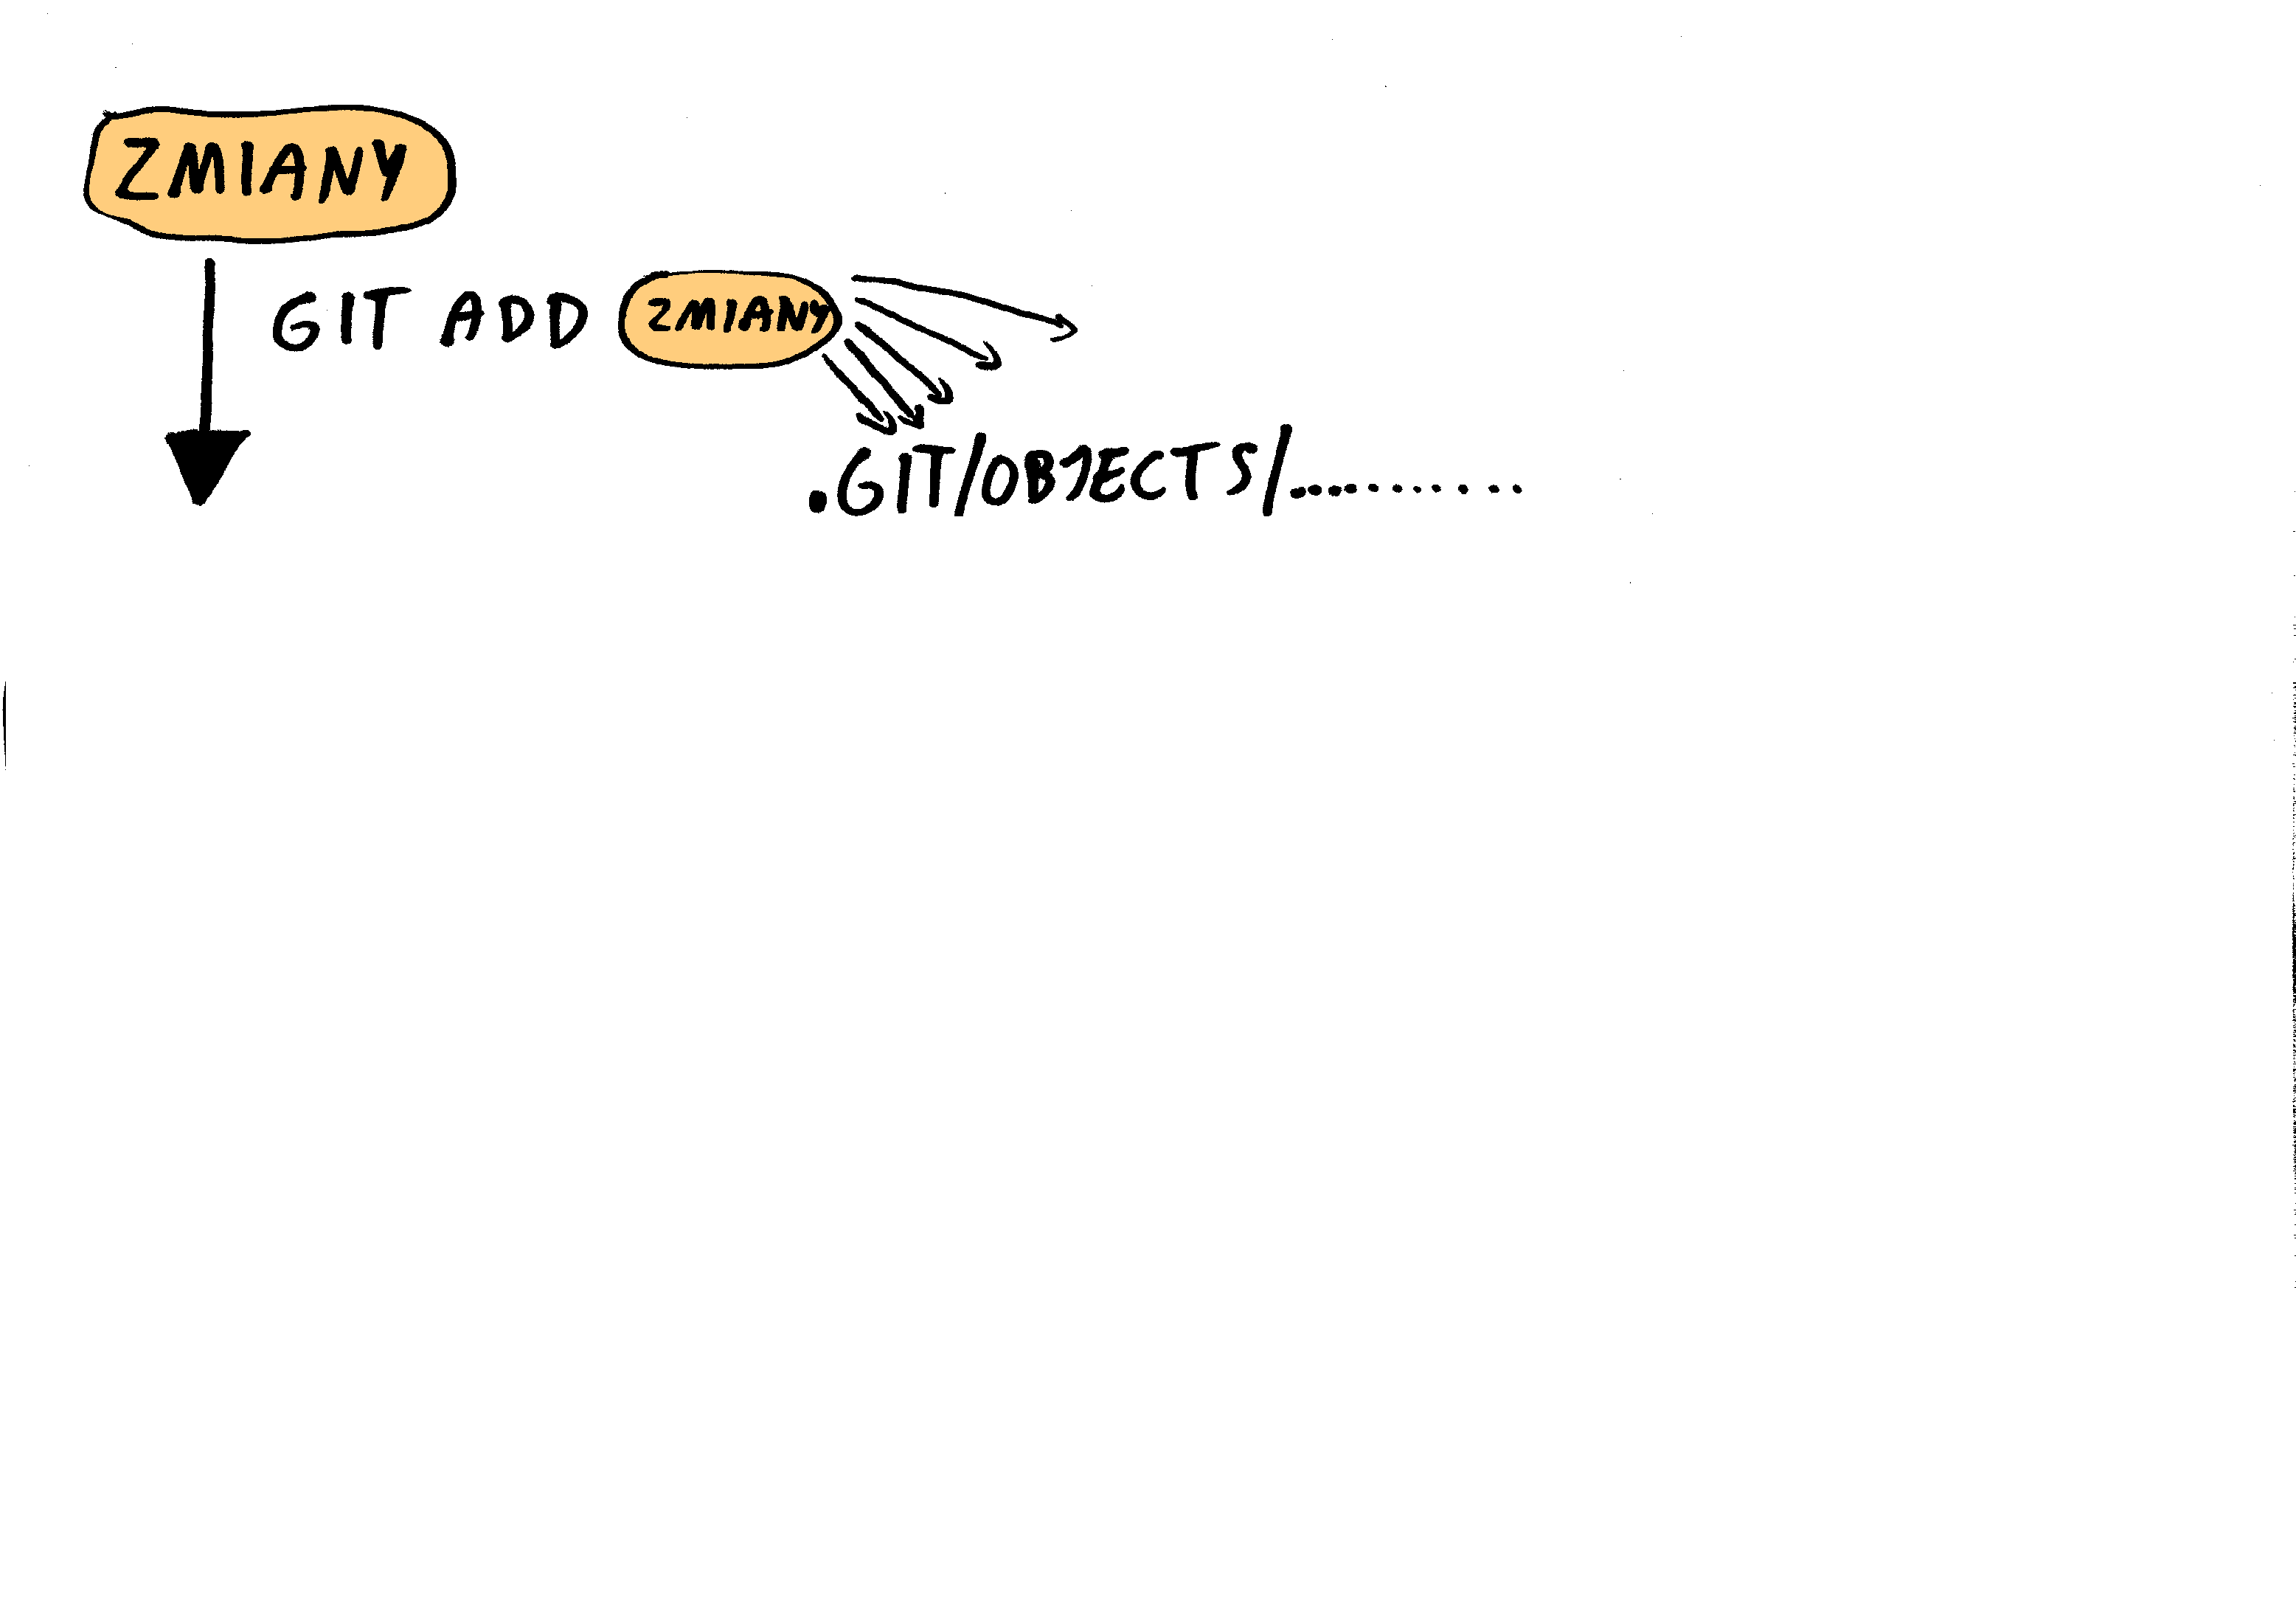 ZMIANY
GIT ADD ZMIANY
.GIT/OBJECTS/...........